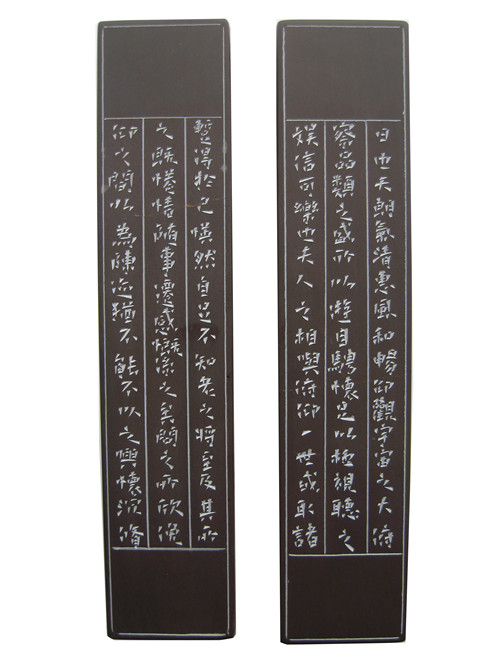 日也天朗氣清惠風和暢仰觀宇宙之大俯
察品類之盛所以遊目騁懷足以極視聽之
娛信可樂也夫人之相與俯仰一世或取諸
暫得於己快然自足不知老之將至及其所
之既惓情隨事遷感慨係之矣向之所欣俛
仰之間以為陳迹猶不能不以之興懷況脩